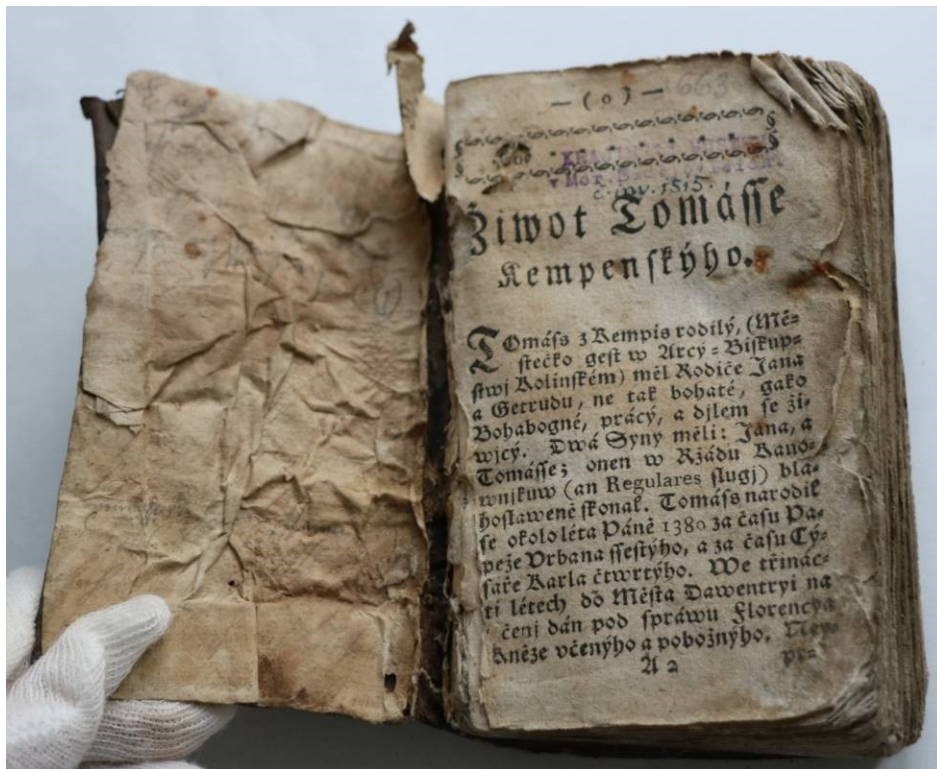 — ( o ) — 663
č. inv. 1515.
Žiwot Tomásse
Kempenskýho.
Tomáss z Kempis rodilý, (Mě=
stečko gest w Arcy = Biskup=
stwj Kolinském) měl Rodiče Jana
a Getrudu, ne tak bohaté, gako
Bohabogné, prácý, a djlem se ži=
wjcý. Dwá Syny měli: Jana, a
Tomásse; onen w Ržádu Kano=
wnjkuw (an Regulares slugj) bla=
hoslaweně skonal. Tomáss narodil
se okolo léta Páně 1380 za času Pa=
peže Vrbana ssestýho, a za času Cý=
saře Karla čtwrtýho. We třinác=
ti létech do Města Dawentryi na
čenj dán pod spráwu Florencya
Kněze včenýho a pobožnýho. Ney=
A 2 pr=